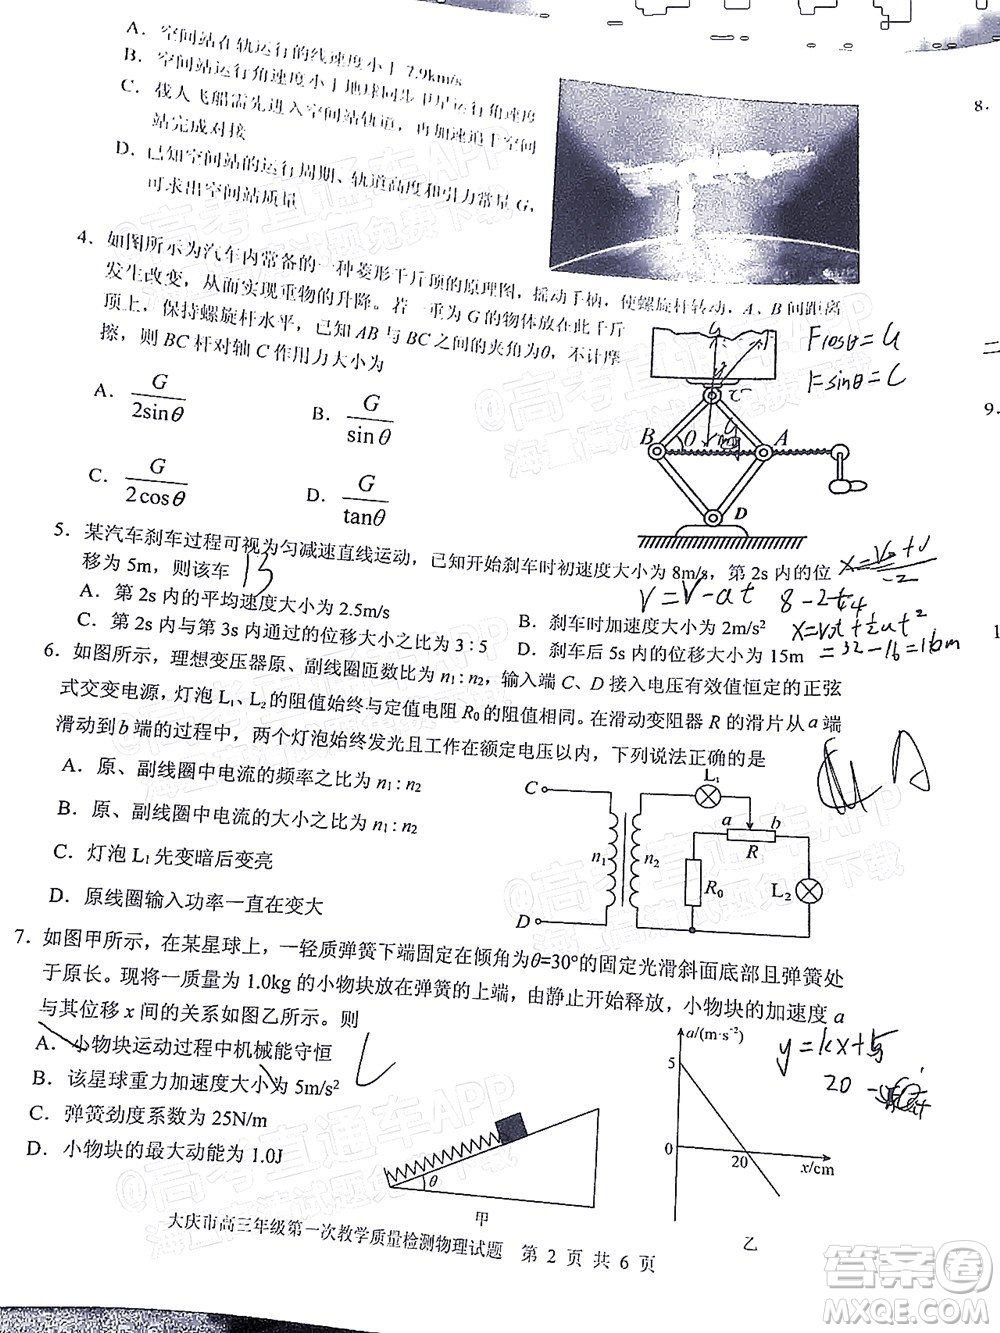 A. 空间站在轨运行的线速度小于 7.9km/s
B. 空间站运行角速度小于地球同步卫星运行角速度
C. 载人飞船需先进入空间站轨道，再加速追上空间
站完成对接
D. 已知空间站的运行周期、轨道高度和引力常量 G，
可求出空间站质量
8.
4. 如图所示为汽车内常备的一种菱形千斤顶的原理图，摇动手柄，使螺旋杆转动，A、B 间距离
发生改变，从而实现重物的升降。若一重为 G 的物体放在此千斤
顶上，保持螺旋杆水平，已知 AB 与 BC 之间的夹角为θ，不计摩
擦，则 BC 杆对轴 C 作用力大小为
A. G/2sinθ
B. G/sinθ
C. G/2cosθ
D. G/tanθ
Fcosθ=G
Fsinθ=C
B θ A
D
二
9.
5. 某汽车刹车过程可视为匀减速直线运动，已知开始刹车时初速度大小为 8m/s，第 2s 内的位
移为 5m，则该车 B
A. 第 2s 内的平均速度大小为 2.5m/s
B. 刹车时加速度大小为 2m/s²
C. 第 2s 内与第 3s 内通过的位移大小之比为 3 : 5
D. 刹车后 5s 内的位移大小为 15m
V=V-at
=32-16=16m
6. 如图所示，理想变压器原、副线圈匝数比为 n₁ : n₂，输入端 C、D 接入电压有效值恒定的正弦
式交变电源，灯泡 L₁、L₂ 的阻值始终与定值电阻 R₀ 的阻值相同。在滑动变阻器 R 的滑片从 a 端
滑动到 b 端的过程中，两个灯泡始终发光且工作在额定电压以内，下列说法正确的是
A. 原、副线圈中电流的频率之比为 n₁ : n₂
B. 原、副线圈中电流的大小之比为 n₁ : n₂
C. 灯泡 L₁ 先变暗后变亮
D. 原线圈输入功率一直在变大
C L₁
a b
R
n₁ n₂
R₀ L₂
D
7. 如图甲所示，在某星球上，一轻质弹簧下端固定在倾角为θ=30°的固定光滑斜面底部且弹簧处
于原长。现将一质量为 1.0kg 的小物块放在弹簧的上端，由静止开始释放，小物块的加速度 a
与其位移 x 间的关系如图乙所示。则
A. 小物块运动过程中机械能守恒
B. 该星球重力加速度大小为 5m/s²
C. 弹簧劲度系数为 25N/m
D. 小物块的最大动能为 1.0J
θ
甲
a/(m·s⁻²)
5
0 20 x/cm
乙
y=kx+5
大庆市高三年级第一次教学质量检测物理试题 第 2 页 共 6 页
答案圈
MXQE.COM